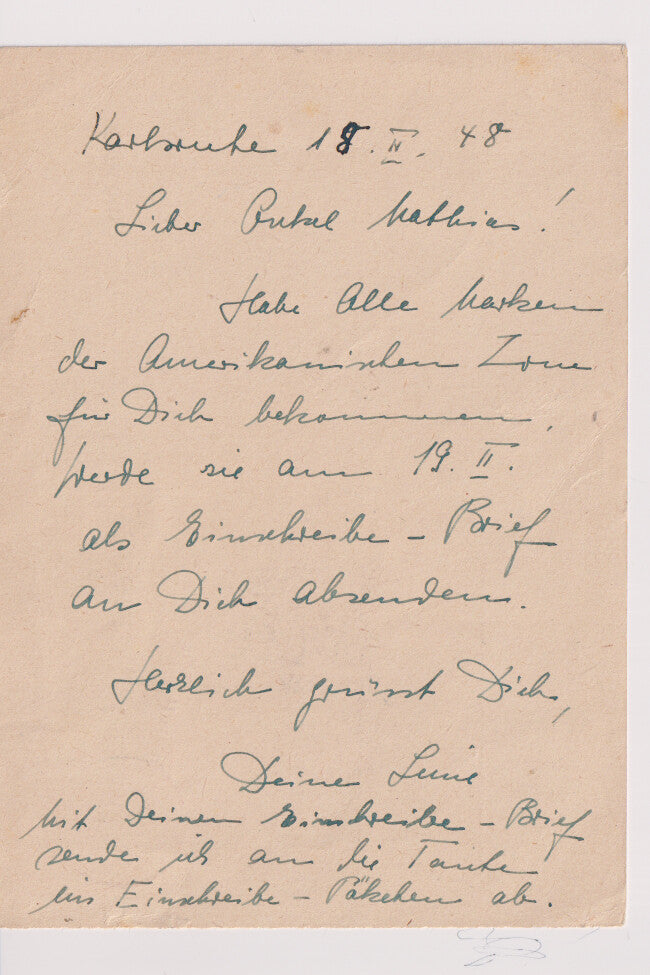 Karlsruhe 18. II. 48
Lieber Onkel Mathias!
Habe Alle Marken
der Amerikanischen Zone
für Dich bekommen,
werde sie am 19. II.
als Einschreibe - Brief
an Dich absenden.
Herzlich grüsst Dich,
Deine
Mit Deinem Einschreibe - Brief
sende ich an die Tante
ein Einschreibe - Päkchen ab.